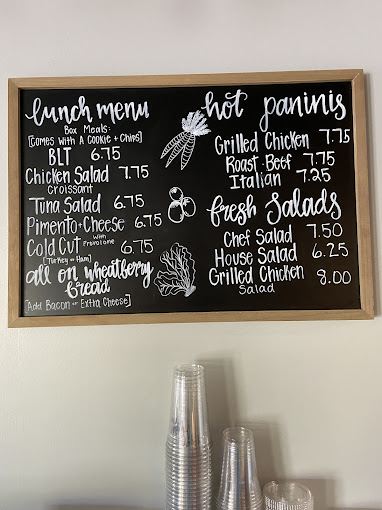 lunch menu
Box Meals:
[Comes With A Cookie + Chips]
BLT 6.75
Chicken Salad 7.75
Croissant
Tuna Salad 6.75
Pimento + Cheese 6.75
Cold Cut With Provolone 6.75
[Turkey or Ham]
all on wheatberry
bread
[Add Bacon or Extra Cheese]
hot paninis
Grilled Chicken 7.75
Roast Beef 7.75
Italian 7.25
fresh Salads
Chef Salad 7.50
House Salad 6.25
Grilled Chicken 8.00
Salad